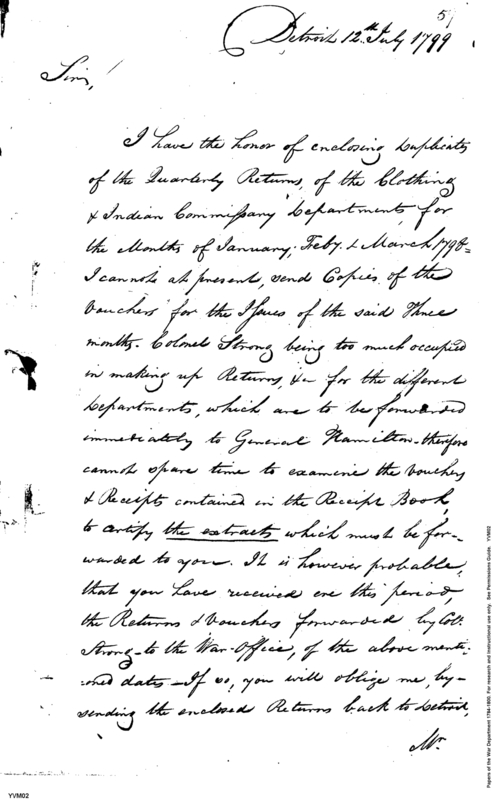 57
Detroit 12th July 1799
Sir,
I have the honor of enclosing Duplicates
of the Quarterly Returns, of the Clothing
& Indian Commissary Departments, for
the Months of January, Feby. & March, 1798-
I cannot at present, send Copies of the
Vouchers for the Issues of the said Three
months. Colonel Strong being too much occupied
in making up Returns, &c for the different
Departments, which are to be forwarded
immediately to General Hamilton - therefore
cannot spare time to examine the vouchers
& Receipts contained in the Receipt Book,
to certify the extracts which must be for-
warded to you. It is however probable,
that you have received ere this period,
the Returns & Vouchers forwarded by Coll.
Strong - to the War-Office, of the above menti-
oned dates - If so, you will oblige me, by -
sending the enclosed Returns back to Detroit,
Mr.
YVM02
Papers of the War Department 1784-1800. For research and instructional use only. See Permissions Guide. YVM02